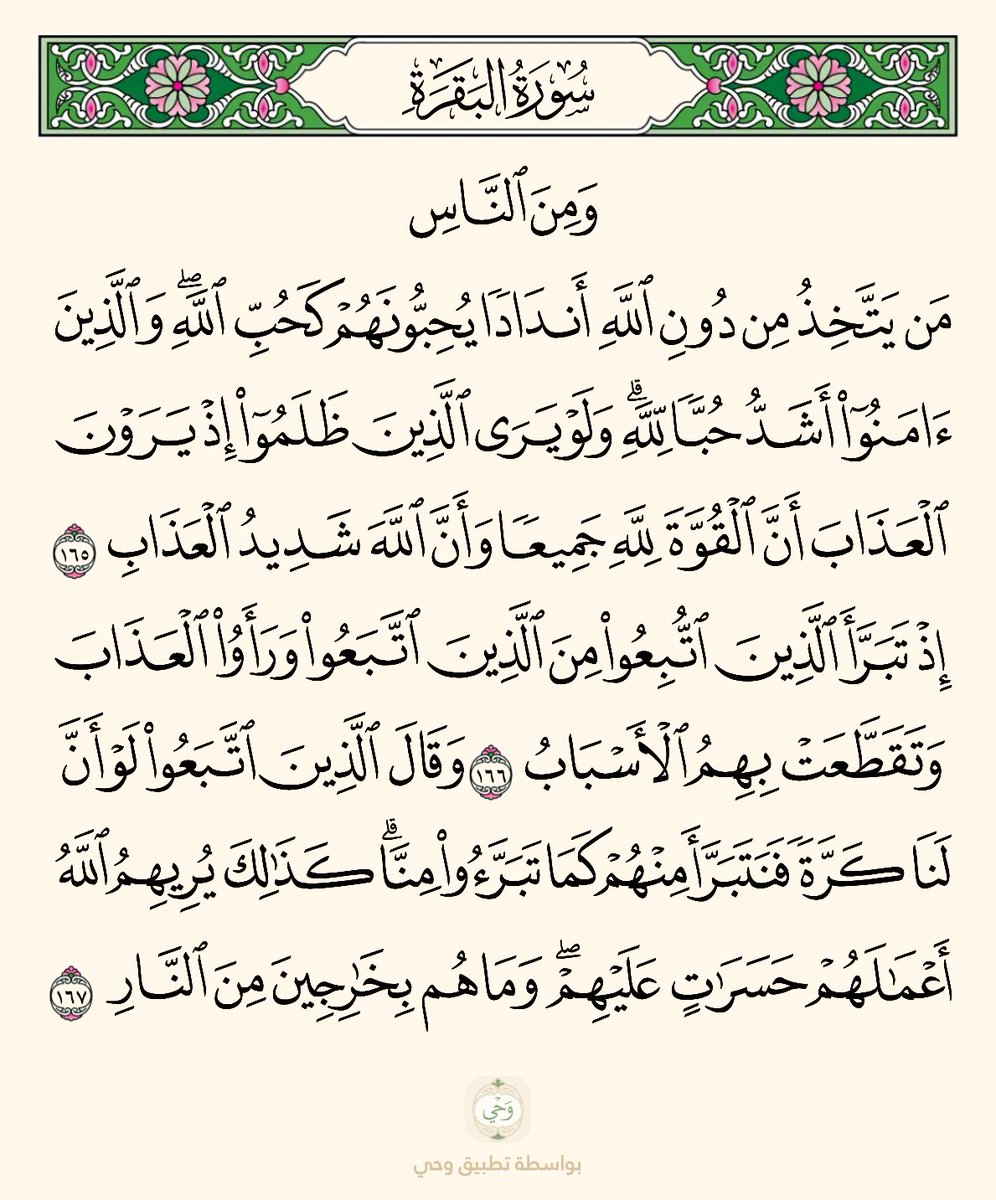 سُورَةُ البَقَرَةِ
وَمِنَ ٱلنَّاسِ
مَن يَتَّخِذُ مِن دُونِ ٱللَّهِ أَندَادٗا يُحِبُّونَهُمۡ كَحُبِّ ٱللَّهِۖ وَٱلَّذِينَ
ءَامَنُوٓاْ أَشَدُّ حُبّٗا لِّلَّهِۗ وَلَوۡ يَرَى ٱلَّذِينَ ظَلَمُوٓاْ إِذۡ يَرَوۡنَ
ٱلۡعَذَابَ أَنَّ ٱلۡقُوَّةَ لِلَّهِ جَمِيعٗا وَأَنَّ ٱللَّهَ شَدِيدُ ٱلۡعَذَابِ ١٦٥
إِذۡ تَبَرَّأَ ٱلَّذِينَ ٱتُّبِعُواْ مِنَ ٱلَّذِينَ ٱتَّبَعُواْ وَرَأَوُاْ ٱلۡعَذَابَ
وَتَقَطَّعَتۡ بِهِمُ ٱلۡأَسۡبَابُ ١٦٦ وَقَالَ ٱلَّذِينَ ٱتَّبَعُواْ لَوۡ أَنَّ
لَنَا كَرَّةٗ فَنَتَبَرَّأَ مِنۡهُمۡ كَمَا تَبَرَّءُواْ مِنَّاۗ كَذَٰلِكَ يُرِيهِمُ ٱللَّهُ
أَعۡمَٰلَهُمۡ حَسَرَٰتٍ عَلَيۡهِمۡۖ وَمَا هُم بِخَٰرِجِينَ مِنَ ٱلنَّارِ ١٦٧
وَحْي
بواسطة تطبيق وحي